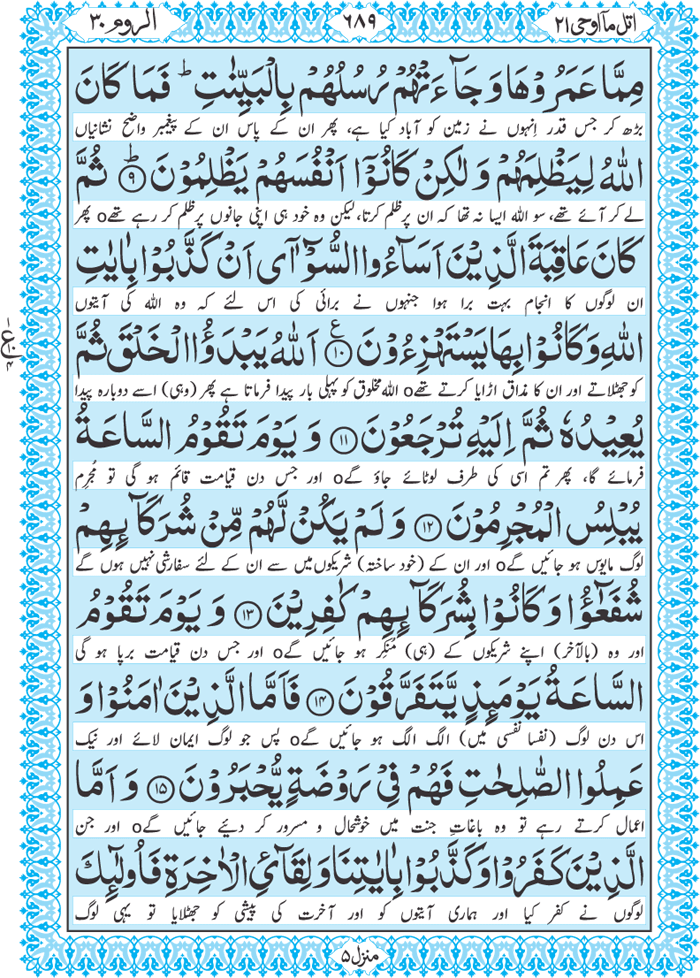 اتل مآاوحی ۲۱
۶۸۹
الروم ۳۰
مِمَّا عَمَرُوْهَا وَ جَآءَتْهُمْ رُسُلُهُمْ بِالْبَیِّنٰتِ ؕ فَمَا كَانَ
بڑھ کر جس قدر اِنہوں نے زمین کو آباد کیا ہے، پھر ان کے پاس ان کے پیغمبر واضح نشانیاں
اللّٰهُ لِیَظْلِمَهُمْ وَ لٰكِنْ كَانُوْۤا اَنْفُسَهُمْ یَظْلِمُوْنَ ؕ۝۹ ثُمَّ
لے کر آئے تھے، سو اللہ ایسا نہ تھا کہ ان پر ظلم کرتا، لیکن وہ خود ہی اپنی جانوں پر ظلم کر رہے تھے o پھر
كَانَ عَاقِبَةَ الَّذِیْنَ اَسَآءُوا السُّوْٓاٰۤی اَنْ كَذَّبُوْا بِاٰیٰتِ
ان لوگوں کا انجام بہت برا ہوا جنہوں نے برائی کی اس لئے کہ وہ اللہ کی آیتوں
اللّٰهِ وَ كَانُوْا بِهَا یَسْتَهْزِءُوْنَ ۝۱۰ع اَللّٰهُ یَبْدَؤُا الْخَلْقَ ثُمَّ
کو جھٹلاتے اور ان کا مذاق اڑایا کرتے تھے o اللہ مخلوق کو پہلی بار پیدا فرماتا ہے پھر (وہی) اسے دوبارہ پیدا
یُعِیْدُهٗ ثُمَّ اِلَیْهِ تُرْجَعُوْنَ ۝۱۱ وَ یَوْمَ تَقُوْمُ السَّاعَةُ
فرمائے گا، پھر تم اسی کی طرف لوٹائے جاؤ گے o اور جس دن قیامت قائم ہو گی تو مُجرِم
یُبْلِسُ الْمُجْرِمُوْنَ ۝۱۲ وَ لَمْ یَكُنْ لَّهُمْ مِّنْ شُرَكَآىِٕهِمْ
لوگ مایوس ہو جائیں گے o اور ان کے (خود ساختہ) شریکوں میں سے ان کے لئے سفارشی نہیں ہوں گے
شُفَعٰٓؤُا وَ كَانُوْا بِشُرَكَآىِٕهِمْ كٰفِرِیْنَ ۝۱۳ وَ یَوْمَ تَقُوْمُ
اور وہ (بالآخر) اپنے شریکوں کے (ہی) مُنکِر ہو جائیں گے o اور جس دن قیامت برپا ہو گی
السَّاعَةُ یَوْمَىِٕذٍ یَّتَفَرَّقُوْنَ ۝۱۴ فَاَمَّا الَّذِیْنَ اٰمَنُوْا وَ
اس دن لوگ (نفسا نفسی میں) الگ الگ ہو جائیں گے o پس جو لوگ ایمان لائے اور نیک
عَمِلُوا الصّٰلِحٰتِ فَهُمْ فِیْ رَوْضَةٍ یُّحْبَرُوْنَ ۝۱۵ وَ اَمَّا
اعمال کرتے رہے تو وہ باغاتِ جنت میں خوشحال و مسرور کر دیئے جائیں گے o اور جن
الَّذِیْنَ كَفَرُوْا وَ كَذَّبُوْا بِاٰیٰتِنَا وَ لِقَآئِ الْاٰخِرَةِ فَاُولٰٓىِٕكَ
لوگوں نے کفر کیا اور ہماری آیتوں کو اور آخرت کی پیشی کو جھٹلایا تو یہی لوگ
منزل ۵